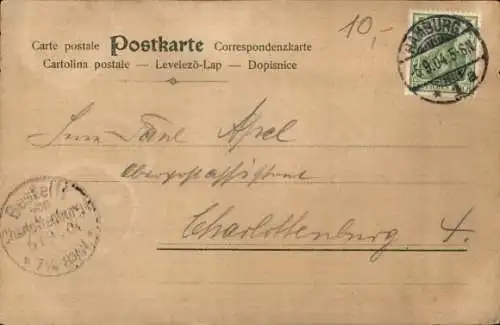 10,-
Carte postale Postkarte Correspondenzkarte
Cartolina postale — Levelező-Lap — Dopisnice
HAMBURG
9.04.5-6N
1
Herrn Paul Apel
Oberpostassistent
Charlottenburg 4.
Bestellt
vom
Charlottenburg
04
7¼-8¼N